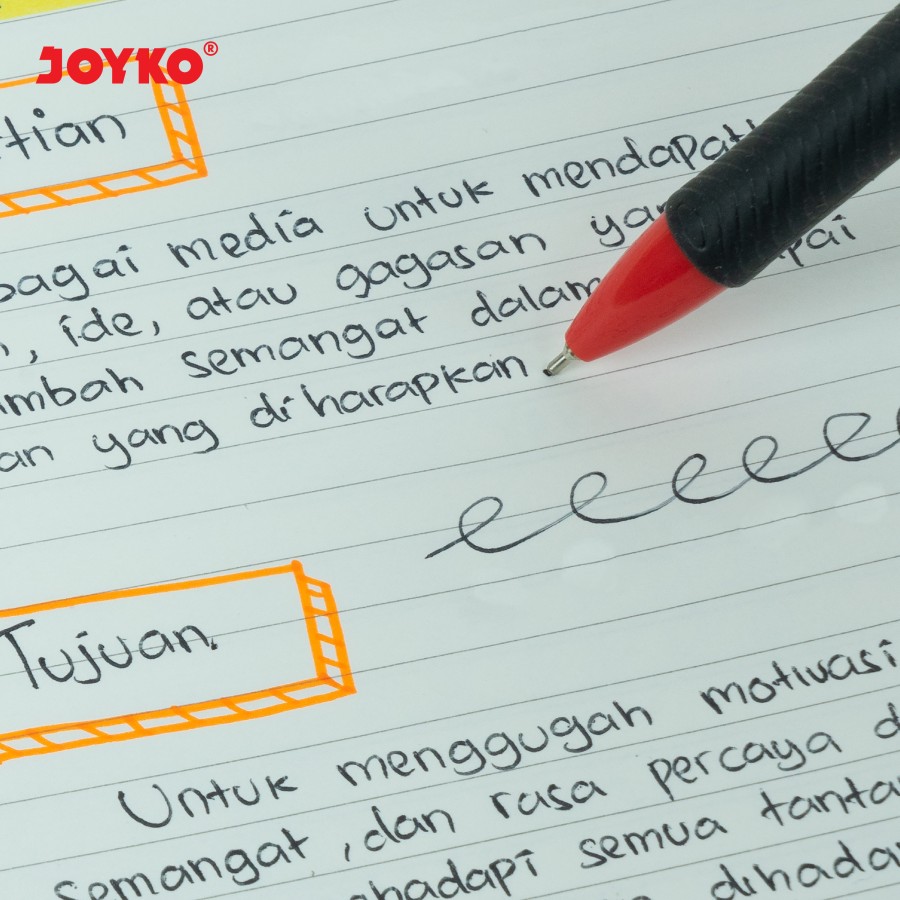 JOYKO®
tian
bagai media untuk mendapat
, ide, atau gagasan ya
mbah semangat dalam pai
an yang diharapkan
Tujuan.
Untuk menggugah motivasi
semangat, dan rasa percaya d
hadapi semua tanta
dihada